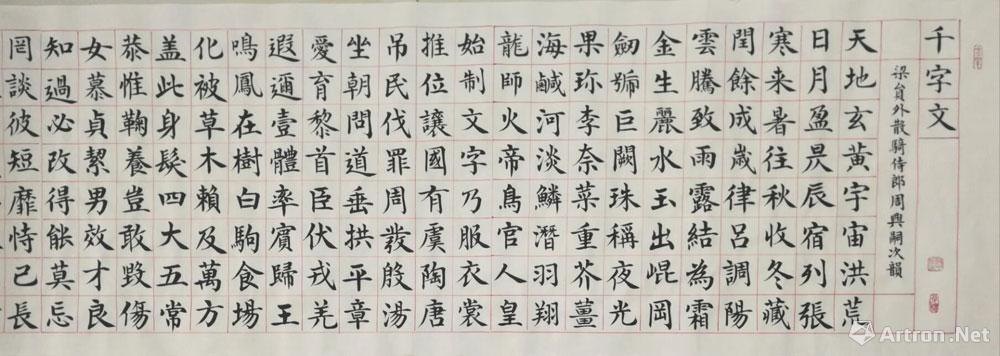 千字文
梁員外散騎侍郎周興嗣次韻
天地玄黃宇宙洪荒
日月盈昃辰宿列張
寒来暑往秋收冬藏
閏餘成歲律呂調陽
雲騰致雨露結為霜
金生麗水玉出崐岡
劎號巨闕珠稱夜光
果珎李奈菜重芥薑
海鹹河淡鱗潛羽翔
龍師火帝鳥官人皇
始制文字乃服衣裳
推位讓國有虞陶唐
吊民伐罪周發殷湯
坐朝問道垂拱平章
愛育黎首臣伏戎羌
遐邇壹體率賓歸王
鳴鳳在樹白駒食場
化被草木賴及萬方
盖此身髮四大五常
恭惟鞠養豈敢毀傷
女慕貞絜男效才良
知過必改得能莫忘
罔談彼短靡恃己長
Artron.Net